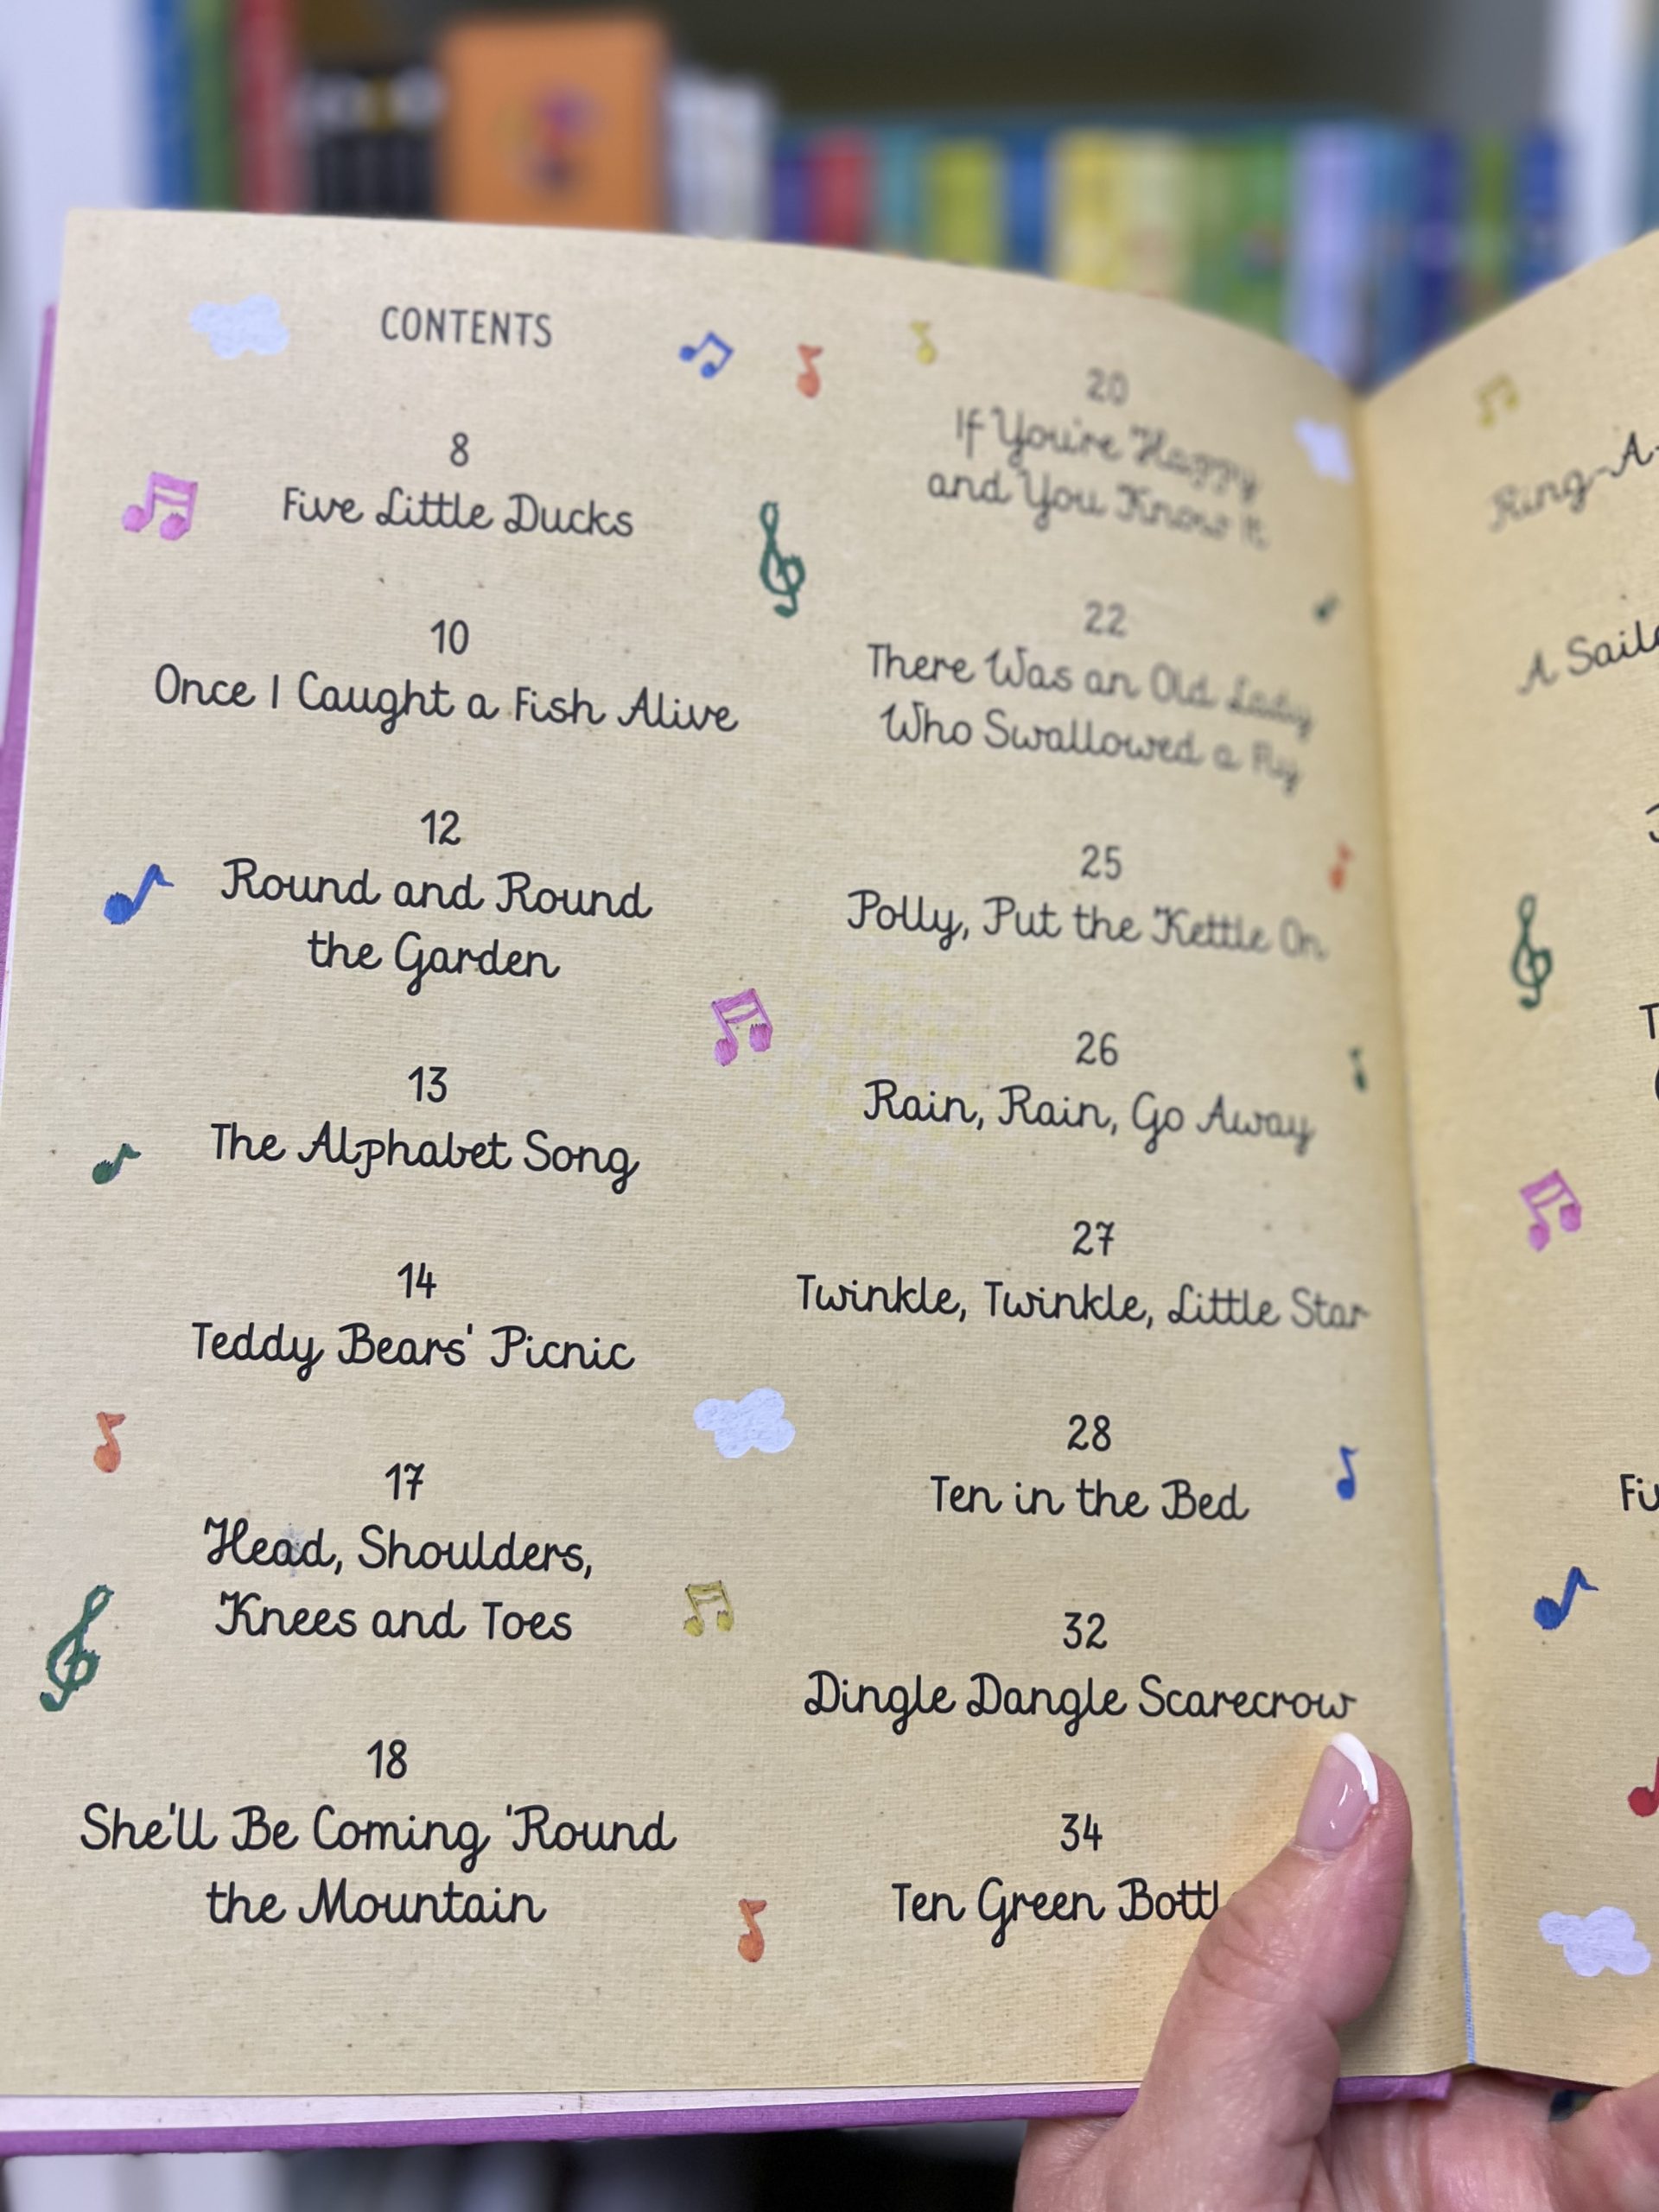 CONTENTS
8
Five Little Ducks
10
Once I Caught a Fish Alive
12
Round and Round
the Garden
13
The Alphabet Song
14
Teddy Bears' Picnic
17
Head, Shoulders,
Knees and Toes
18
She'll Be Coming 'Round
the Mountain
20
If You're Happy
and You Know It
22
There Was an Old Lady
Who Swallowed a Fly
25
Polly, Put the Kettle On
26
Rain, Rain, Go Away
27
Twinkle, Twinkle, Little Star
28
Ten in the Bed
32
Dingle Dangle Scarecrow
34
Ten Green
Ring-A-
A